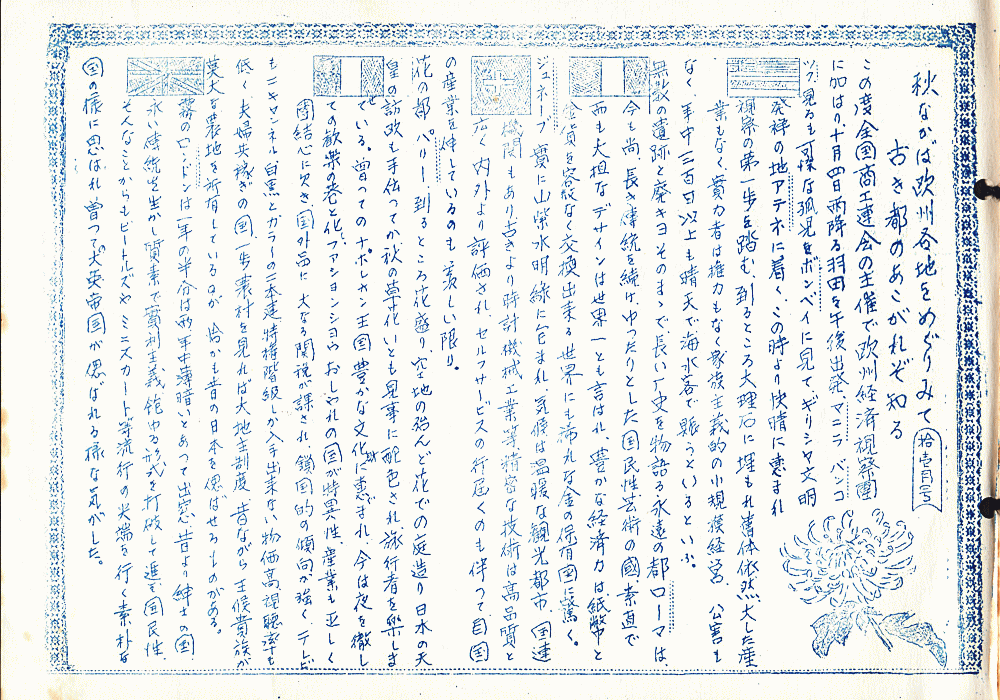 秋なかば欧州各地をめぐりみて
古き都のあこがれぞ知る
拾壱月号
この度全国商工連合の主催で欧州経済視察團
に加はり十月四日雨降る羽田を午後出発、マニラ バンコ
ツク見るも可憐な孤児をボンベイに見てギリシヤ文明
発祥の地アテネに着く、この時より快晴に恵まれ
視察の第一歩を踏む、到るところ大理石に埋もれ舊体依然、大した産
業もなく實力者は権力もなく家族主義的の小規模経営 公害も
なく年中三百日以上も晴天で海水客で賑うといるといふ。
無数の遺跡と廃キヨそのまゝで長い歴史を物語る永遠の都 ローマは
今も尚、長き傳統を続けゆつたりとした国民性芸術の國 素直で
而も大担なデザインは世界一とも言はれ、豊かな経済力は紙幣と
金貨を容赦なく交換出来る世界にも稀れな金の保有国に驚く。
ジュネーブ 實に山紫水明 緑に包まれ、気候は温暖な観光都市 国連
機関 もあり古きより時計機械工業等精密な技術は高品質と
広く内外より評価され、セルフサービスの行届くのも伴つて自国
の産業を伸しているのも羨しい限り。
花の都 パリー、到るところ花盛り、空地の殆んど花での庭造り 日本の天
皇の訪欧も手伝つてか秋の草花いとも見事に配色され旅行者を楽しま
せている。曽つてのナポレオン王国豊かな文化に恵まれ、今は夜を徹し
ての歓楽の巷と化、ファションショウおしゃれの国が特異性、産業も乏しく
團結心に欠き、国外品に 大なる関税が課され、鎖国的の傾向が強く、テレビ
も一キャンネル 白黒とカラーの二本建 特権階級しか入手出来ない物価高、視聴率も
低く、夫婦共稼ぎの国、一歩農村を見れば大地主制度 昔ながら王候貴族が
莫大な農地を所有しているのが 恰かも昔の日本を偲ばせるものがある。
霧のロンドンは一年の半分は雨 年中薄暗いとあつて出窓 昔より紳士の国
永い傳統を生かし質素で實利主義 飽ゆる形式を打破して進む国民性、
そんなことからもビートルズや ミニスカート等流行の尖端を行く素朴な
国の様に思はれ曽つて大英帝国が偲ばれる様な気がした。